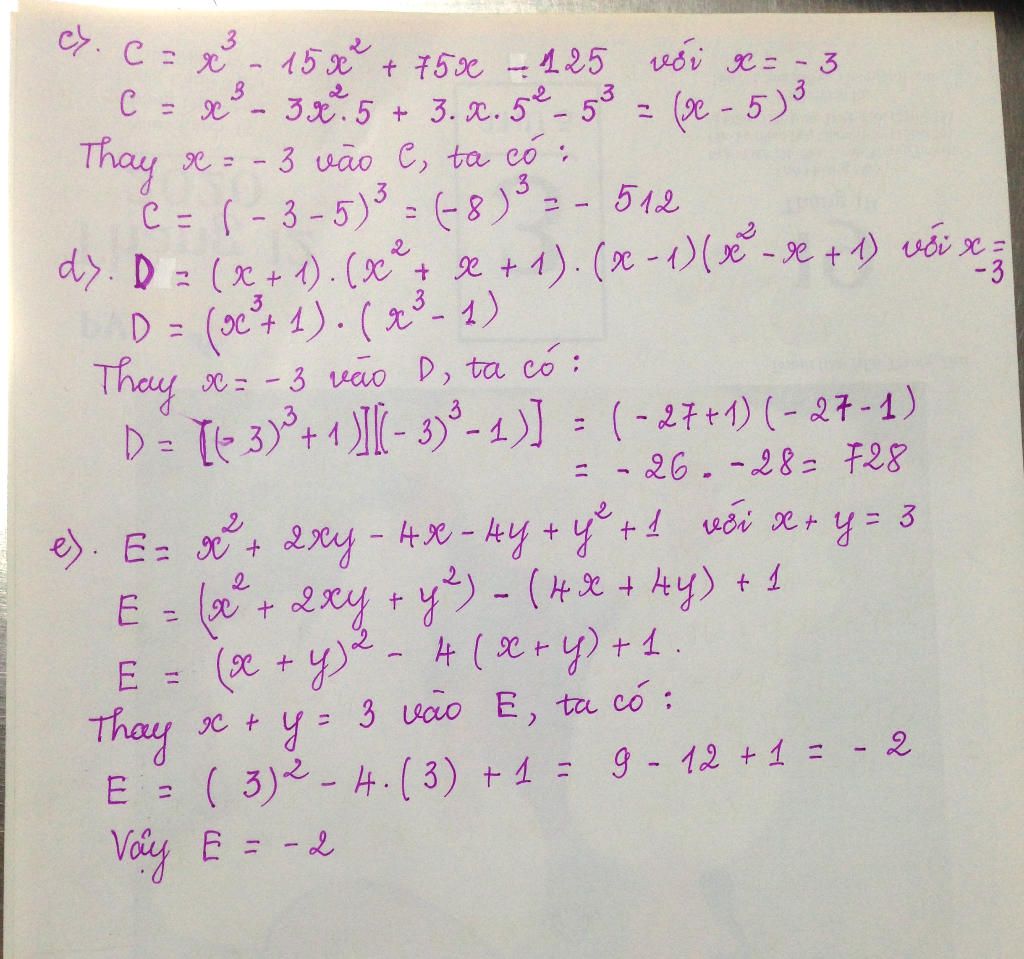 c). C = x³ - 15x² + 75x - 125 với x = - 3
C = x³ - 3x².5 + 3.x.5² - 5³ = (x - 5)³
Thay x = - 3 vào C, ta có :
C = ( - 3 - 5)³ = (-8)³ = - 512
d). D = (x + 1).(x² + x + 1).(x - 1)(x² - x + 1) với x = -3
D = (x³ + 1) . (x³ - 1)
Thay x = - 3 vào D, ta có :
D = [(- 3)³ + 1)][(- 3)³ - 1)] = (- 27 + 1) (- 27 - 1)
= - 26 . - 28 = 728
e). E = x² + 2xy - 4x - 4y + y² + 1 với x + y = 3
E = (x² + 2xy + y²) - (4x + 4y) + 1
E = (x + y)² - 4 (x + y) + 1.
Thay x + y = 3 vào E, ta có :
E = ( 3)² - 4.(3) + 1 = 9 - 12 + 1 = - 2
Vậy E = - 2